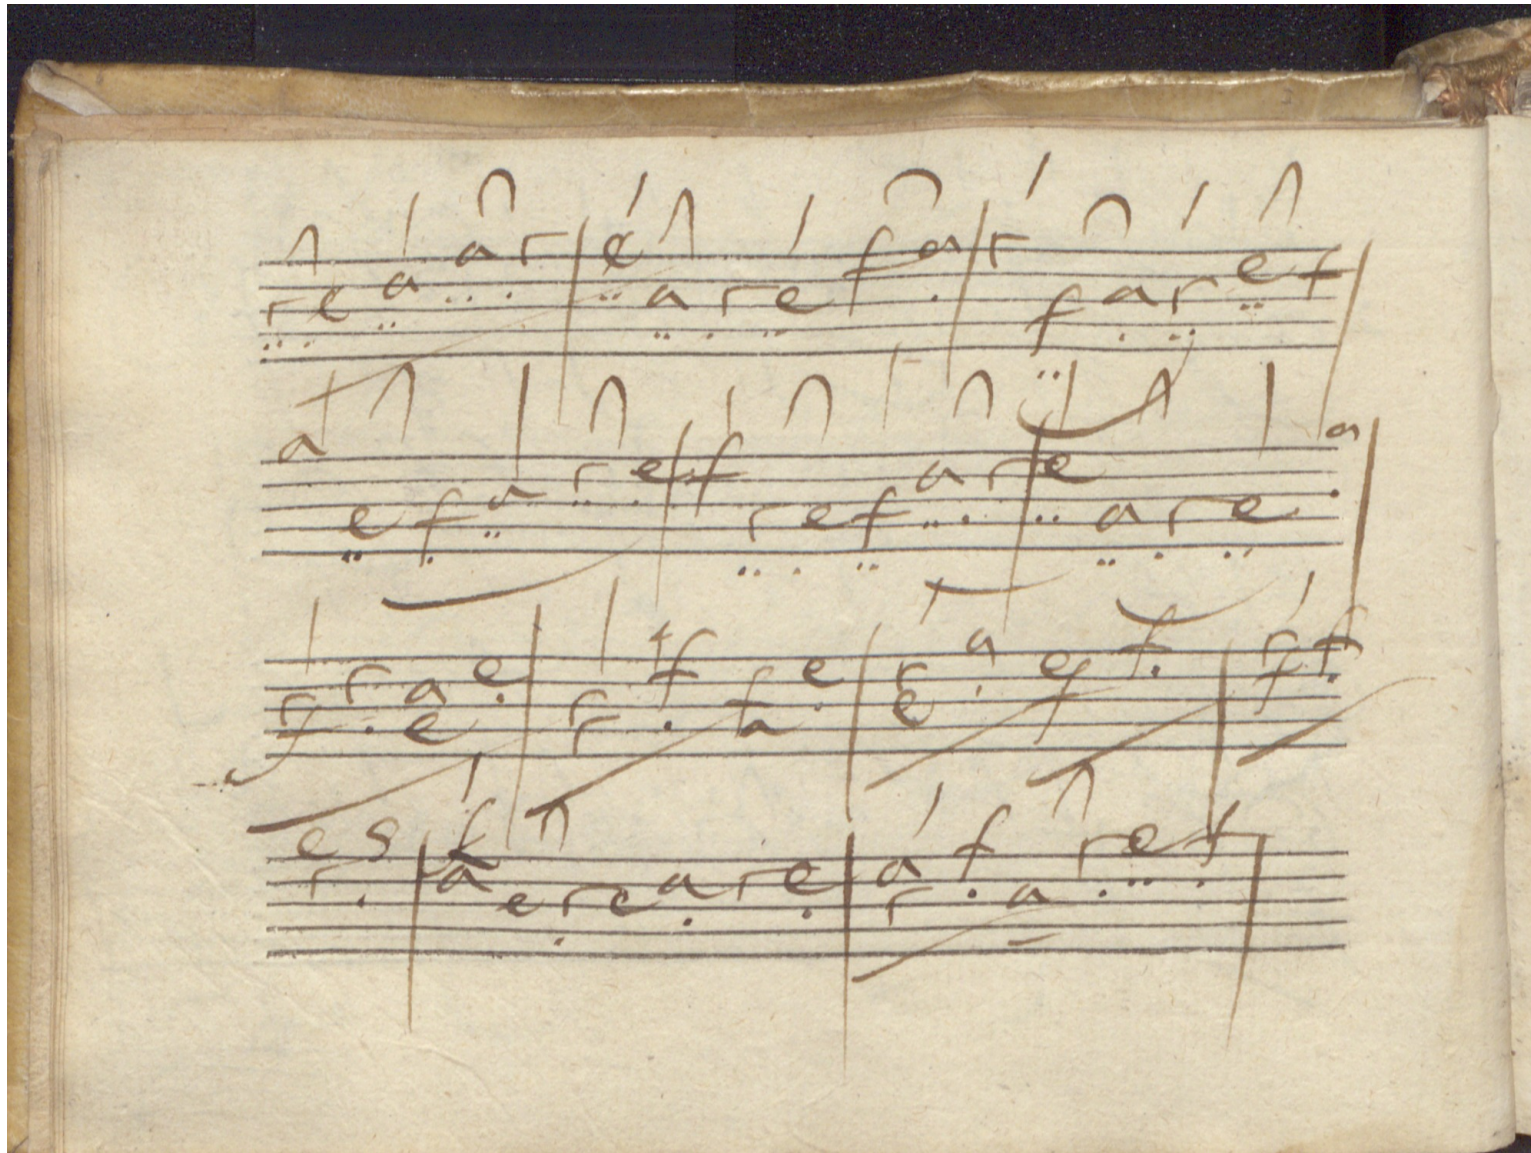 r e a a r e a r e f a r f a r e f
a e f a r e f r e f a r e a r e a
r f r a e e r r f f a e r e a e f f r f f
e s r f a e r e a r e a r f a r e f